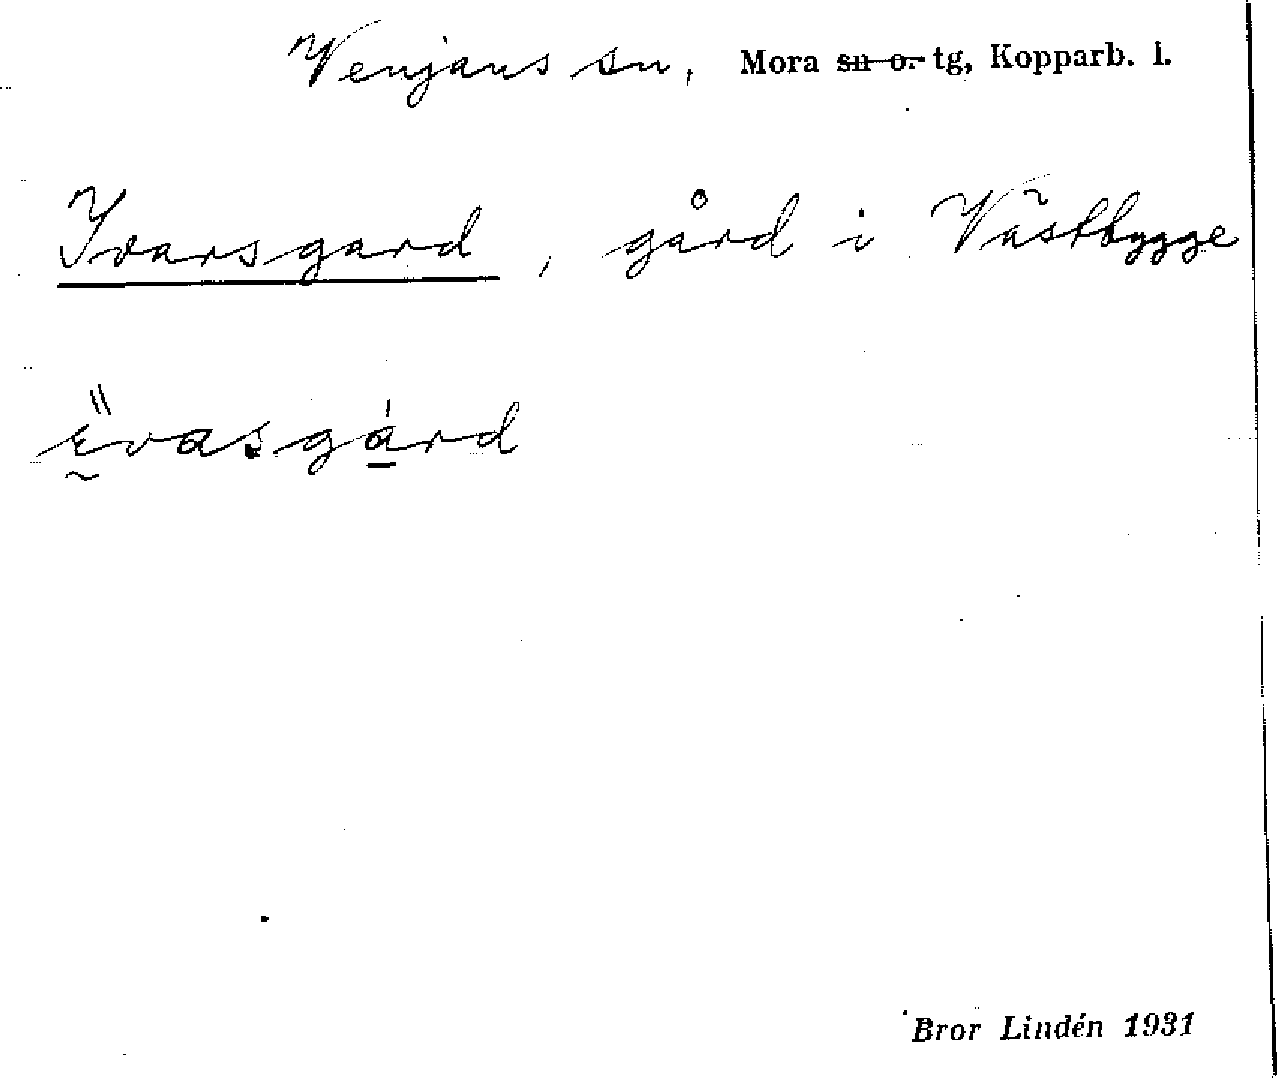 Venjans sn, Mora sn o. tg, Kopparb. l.
Ivarsgard, gård i Västbygge
evasgard
Bror Lindén 1931